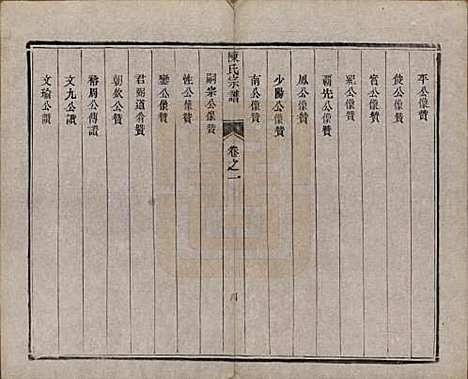 平公像贊
俊公像贊
宮公像贊
羆公像贊
霸先公像贊
鳳公像贊
少陽公像贊
南公像贊
陳氏宗譜
卷之一
四
嗣宗公像贊
性公像贊
鑾公像贊
君弼道肴贊
朝欽公贊
裕周公傳讚
文九公讚
文瑜公讚